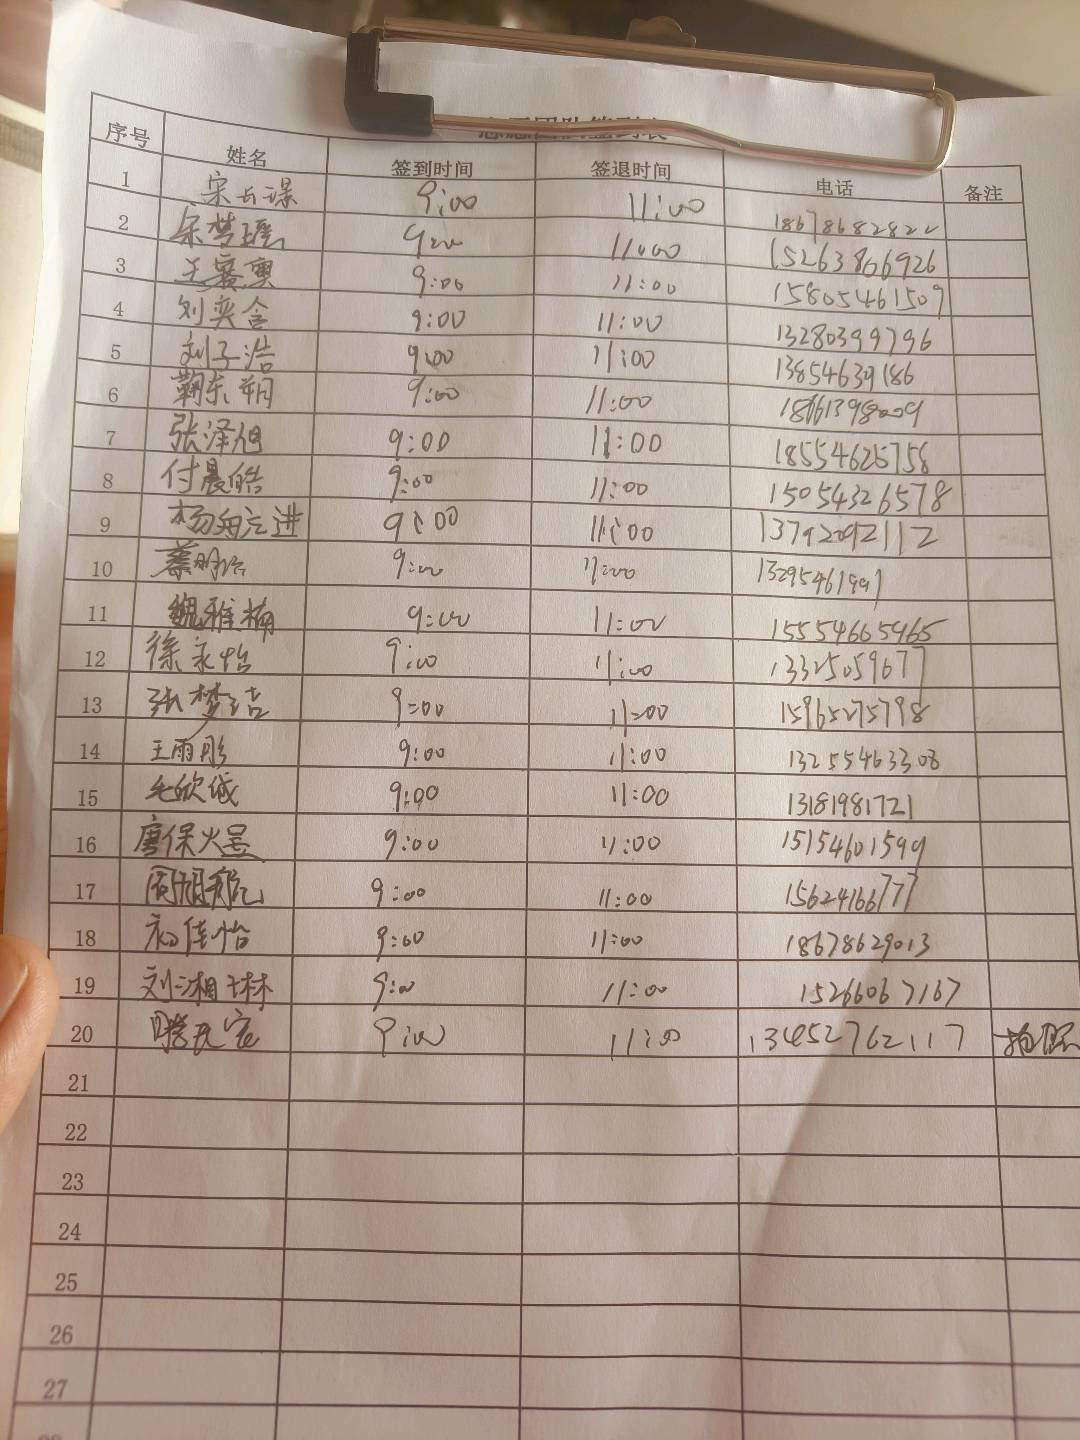 志愿团队签到表
序号 姓名 签到时间 签退时间 电话 备注
1 宋长璟 9:00 11:00 18678682822
2 宋梦瑶 9:00 11:00 15263806926
3 王赛奥 9:00 11:00 15805461509
4 刘奕含 9:00 11:00 13280399796
5 刘子浩 9:00 11:00 13854639186
6 鞠东朔 9:00 11:00 18661398009
7 张泽旭 9:00 11:00 18554625758
8 付晨皓 9:00 11:00 15054326578
9 杨 进 9:00 11:00 13792092112
10 9:00 11:00 13295461991
11 魏雅楠 9:00 11:00 15554665465
12 徐永怡 9:00 11:00 13325059677
13 张梦洁 9=00 11=00 15965275798
14 王雨彤 9:00 11:00 13255463308
15 毛欣 9:00 11:00 13181981721
16 唐保 9:00 11:00 15154601599
17 9:00 11:00 15624166777
18 初佳怡 9:00 11:00 18678629013
19 刘湘琳 9:00 11:00 15266067167
20 9:00 11:00 13452762117 拍照
21
22
23
24
25
26
27
28